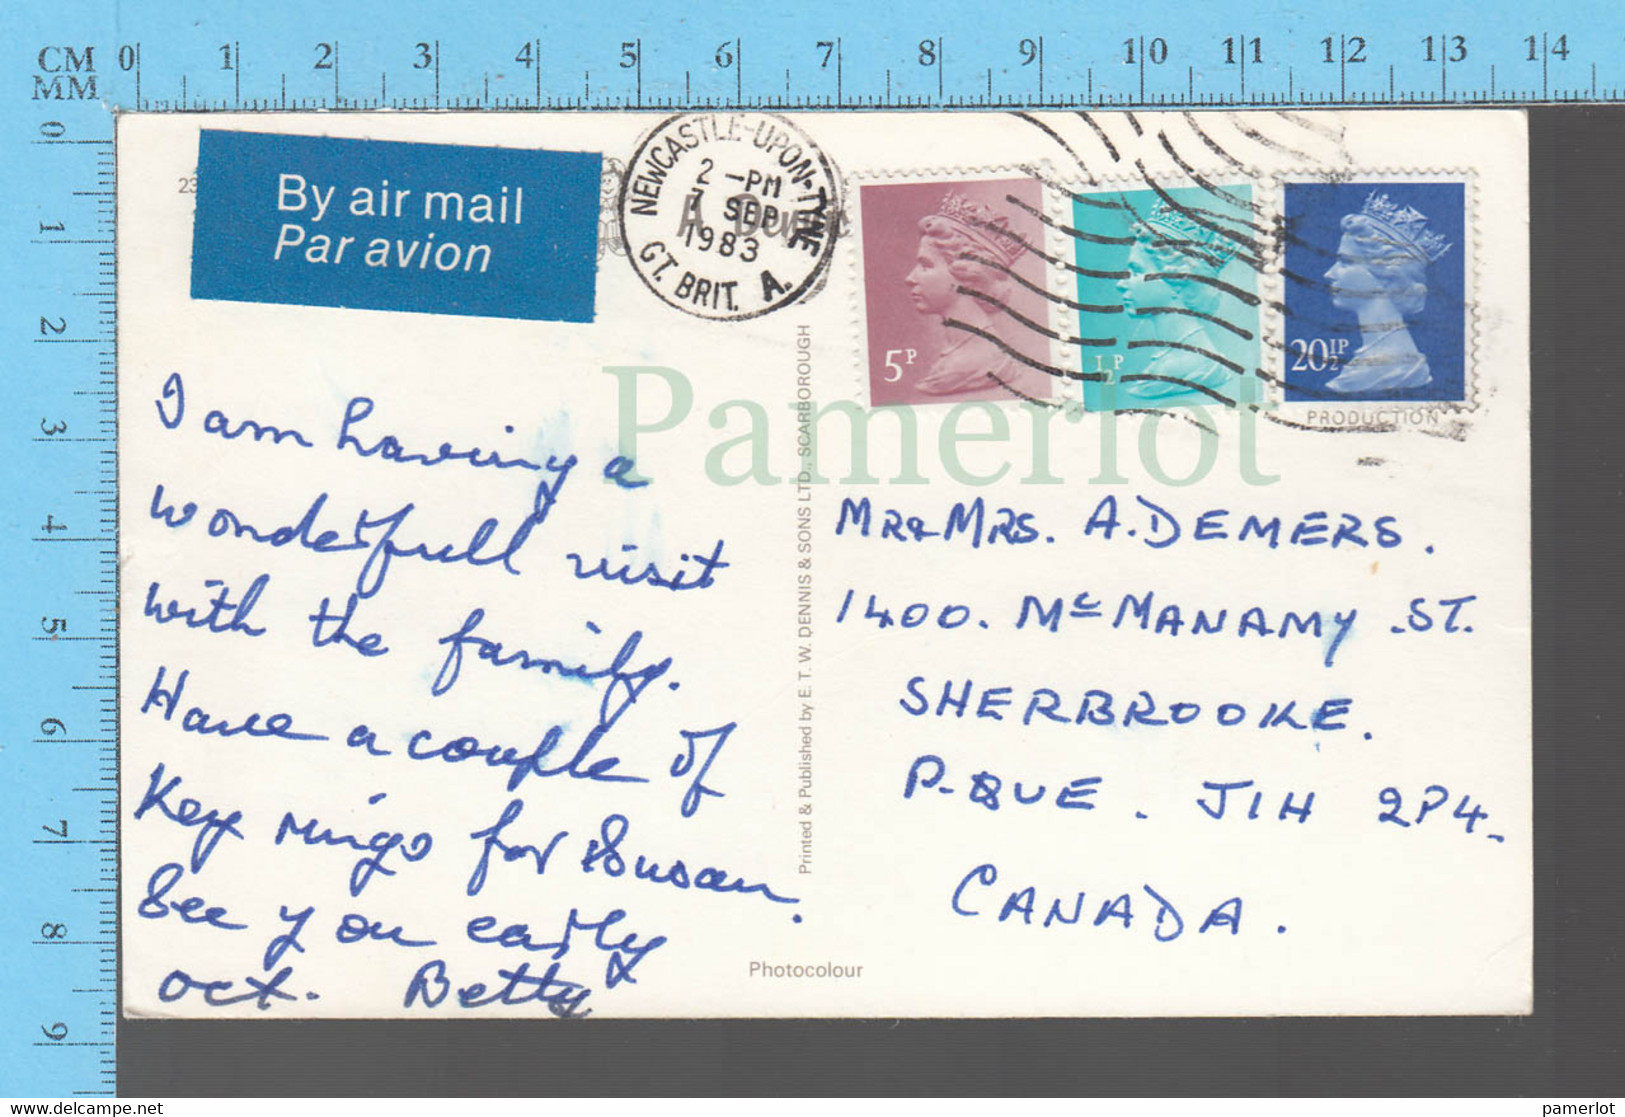 CM 0 1 2 3 4 5 6 7 8 9 10 11 12 13 14
MM
0 1 2 3 4 5 6 7 8 9
23
By air mail
Par avion
NEWCASTLE-UPON-TYNE
2 -PM
7 SEP
1983
GT. BRIT. A.
5P
½P
20½P
PRODUCTION
Pamerlot
I am having a
wonderfull visit
with the family.
Have a couple of
Key rings for Susan.
See you early
oct. Betty
Printed & Published by E. T. W. DENNIS & SONS LTD., SCARBOROUGH
Photocolour
MR & MRS. A. DEMERS.
1400. McMANAMY .ST.
SHERBROOKE.
P.QUE. J1H 2P4.
CANADA.
http://www.delcampe.net
pamerlot